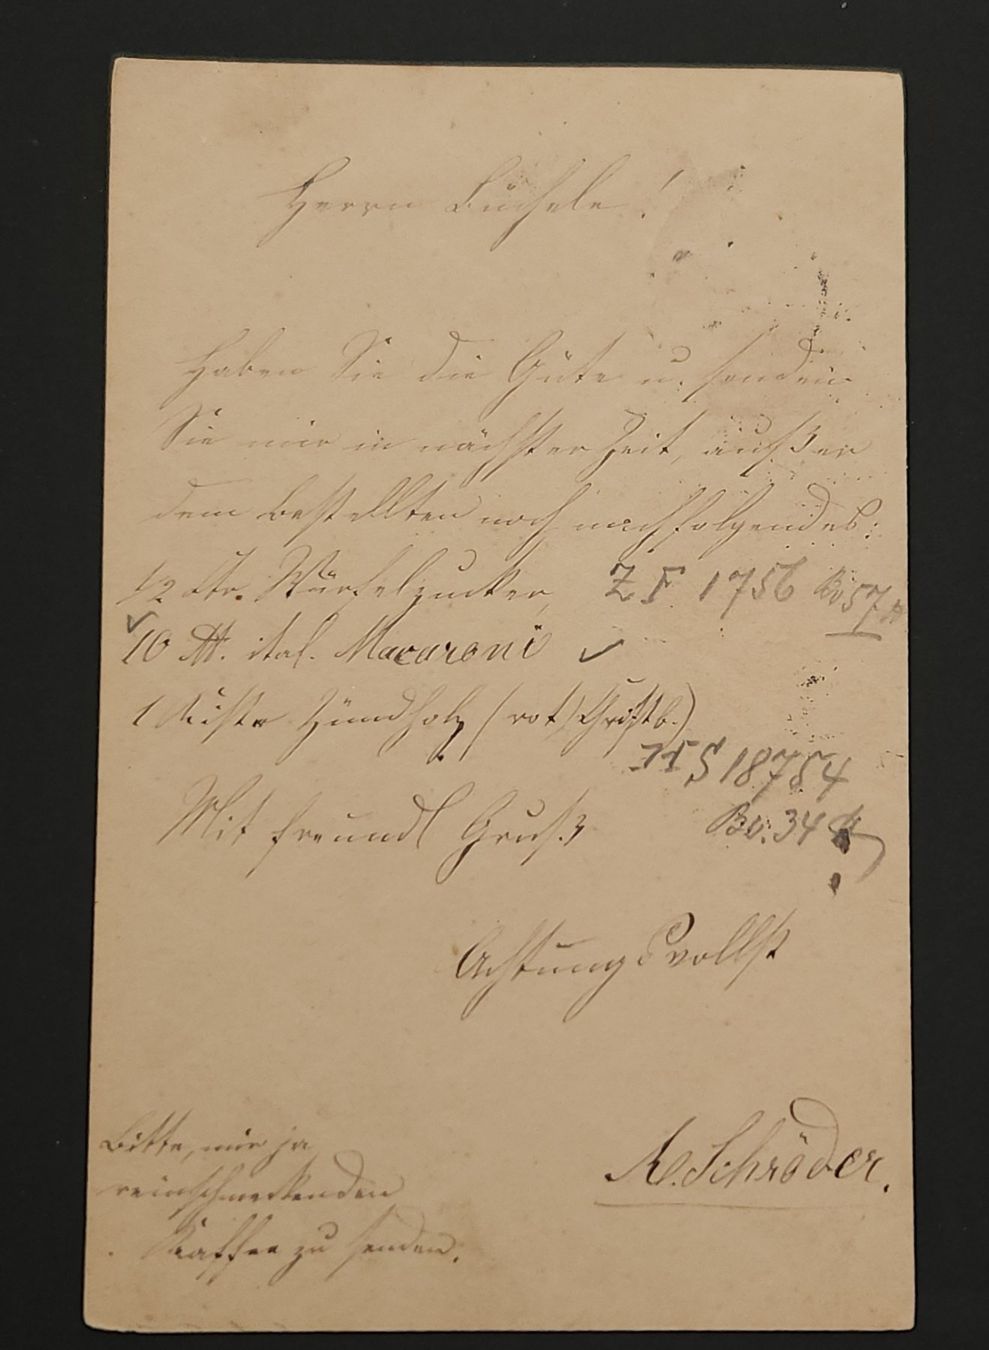 Herrn Büchele!
Haben Sie die Güte u. senden
Sie mir in nächster Zeit, außer
dem bestellten noch nachfolgendes:
1/2 Ctr. Würfelzucker, Z F 1756 Bo 57 ℔
10 ℔. ital. Macaroni
1 Kiste Zündholz (rot) Christb.)
HS 18754
Mit freundl Gruß Bo. 34 ℔
Achtungsvollst
Bitte, mir ja
A. Schröder.
reinschmeckenden
Kaffee zu senden.